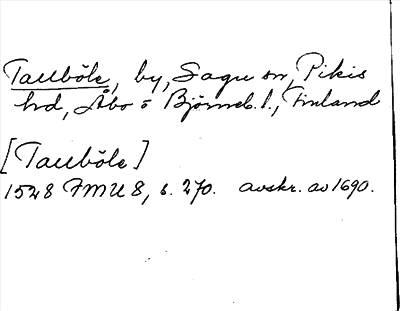 Tauböle, by, Sagu sn, Pikis
hd, Åbo o Björneb. l., Finland
[Tauböle]
1528 FMU 8, s. 270. avskr. av 1690.